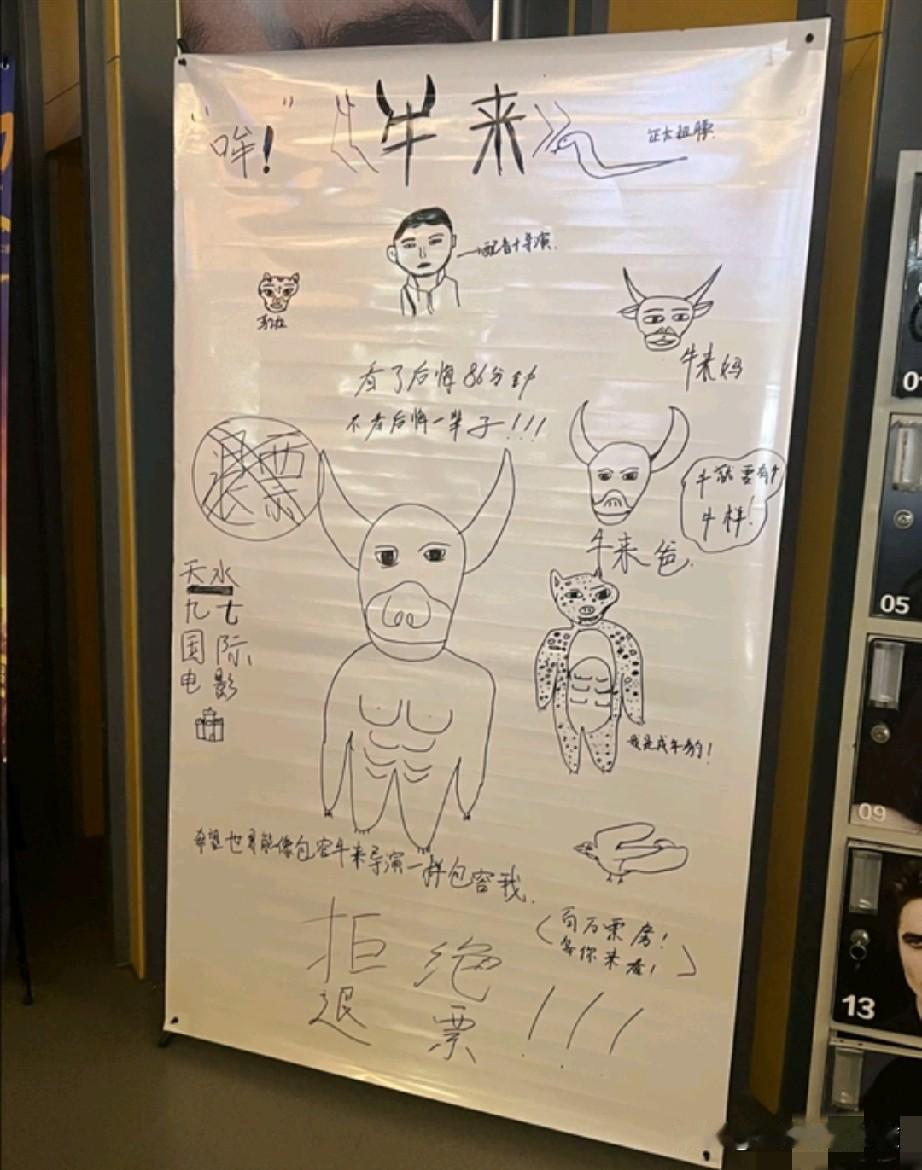 “哞！”《牛来》
配音+导演
看了后悔86分钟
不看后悔一辈子！！！
牛来妈
退票
牛就要有牛样！
牛来爸
天水
九七
国际
电影
我是成年豹！
希望也可能像包容牛来导演一样包容我
（百万票房！
等你来看！）
拒绝
退票！！！
01
05
09
13